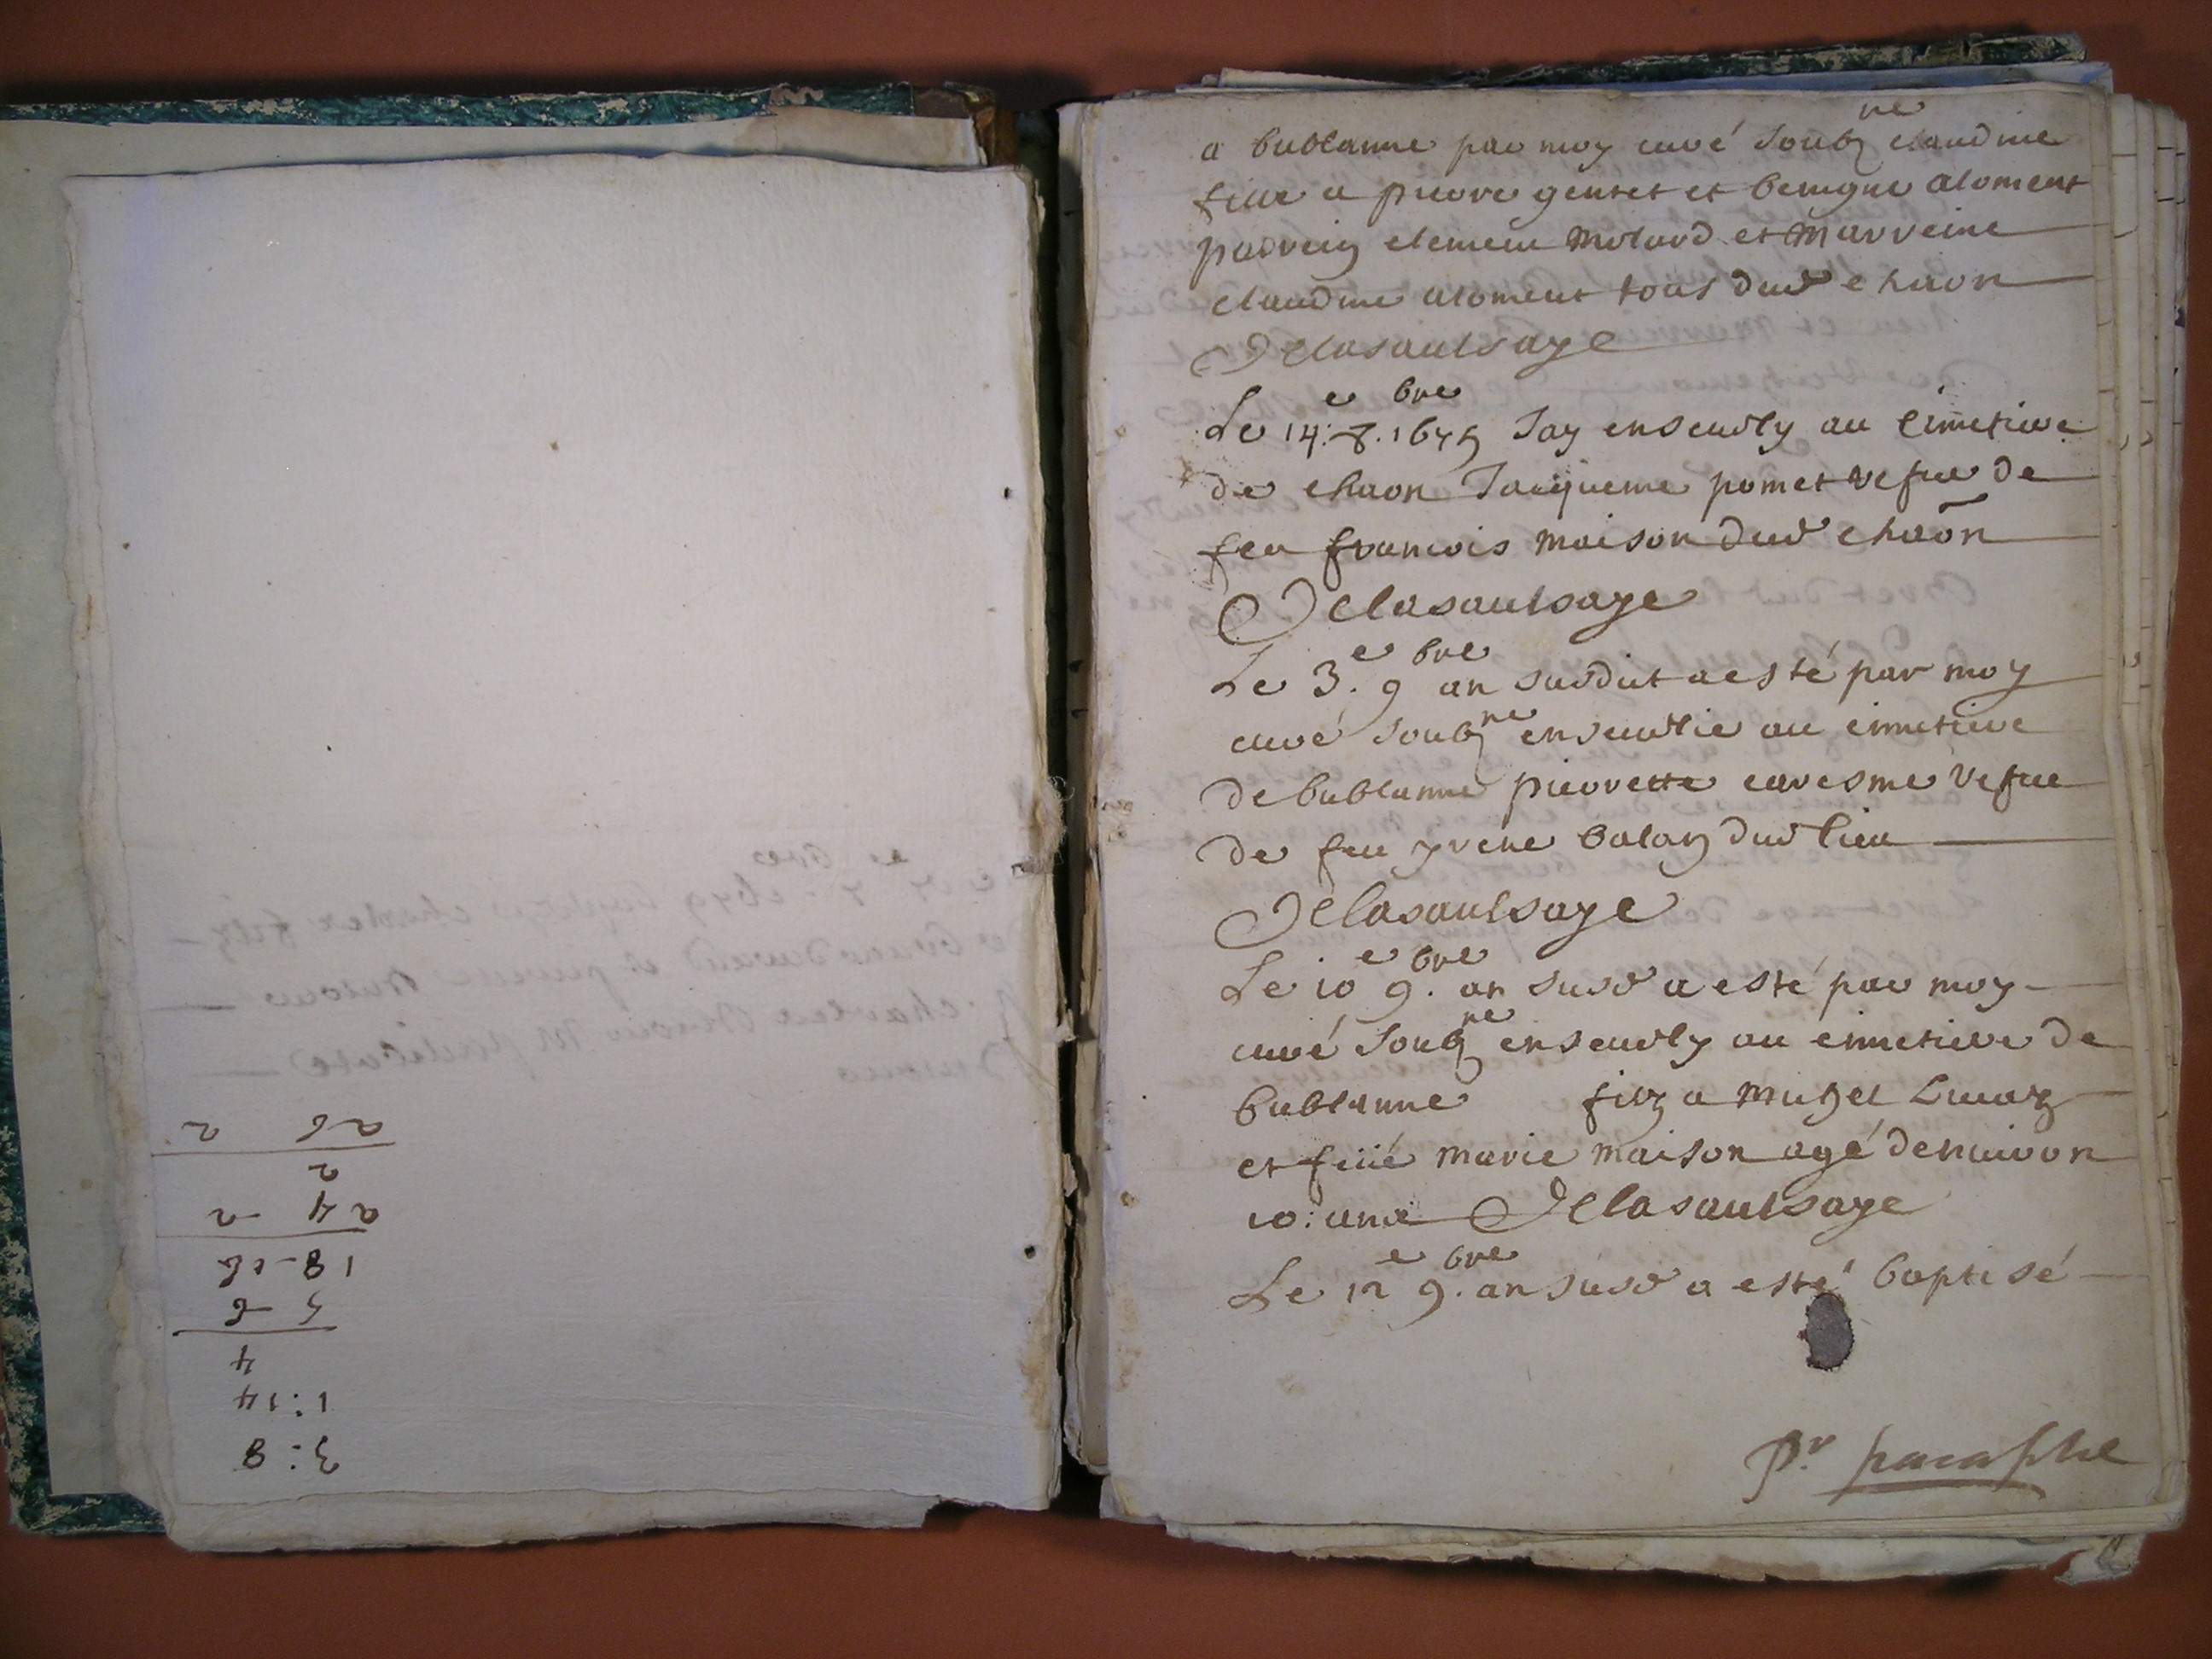 a bublanne par moy curé soubne claudine
fille a pierre gentet et benigne aloment
parrein clement molard et marreine
claudine aloment tous dud chaon
Delasaulsaye
Le 14e 8bre 1675 Jay ensevely au cimetiere
de chaon Jacqueme pomet vefue de
feu francois maison dud chaon
Delasaulsaye
Le 3e 9bre an susdit a esté par moy
curé soubne ensevelie au cimetiere
de bublanne pierrette caresme vefue
de feu yrene balan dud lieu
Delasaulsaye
Le 10e 9bre an susd a esté par moy
curé soubne ensevely au cimetiere de
bublanne filz a michel
et feüe marie maison agé denviron
10: ans Delasaulsaye
Le 12e 9bre an susd a esté baptisé
pr paraphe
3:8
1:14
4
5-6
18-16
24-2
2
26 2